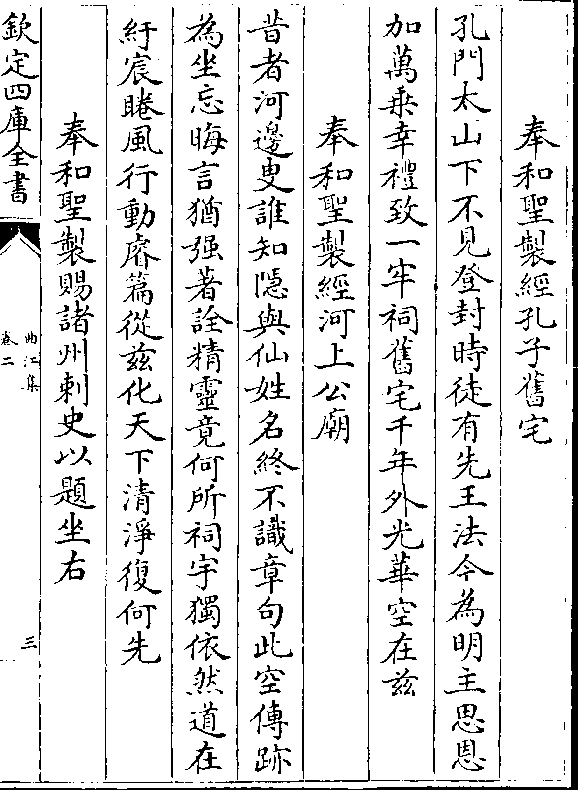 奉和聖製經孔子舊宅
孔門太山下不見登封時徒有先王法今為明主思恩
加萬乗幸禮致一牢祠舊宅千年外光華空在兹
奉和聖製經河上公廟
昔者河邊叟誰知隱與仙姓名終不識章句此空傳跡
為坐忘晦言猶强著詮精靈竟何所祠宇獨依然道在
紆宸睠風行動睿篇從兹化天下清淨復何先
奉和聖製賜諸州刺史以題坐右
欽定四庫全書
曲江集
卷二
三